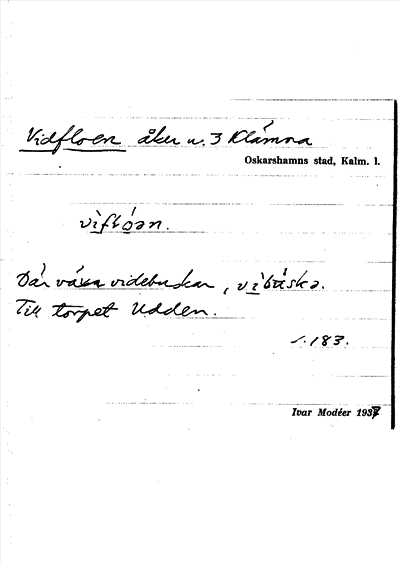 Vidfloen åker n. 3 Klämna
Oskarshamns stad, Kalm. l.
vìflóən.
Där växa videbuskar, vìbúskə.
Till torpet Udden.
s. 183.
Ivar Modéer 1937